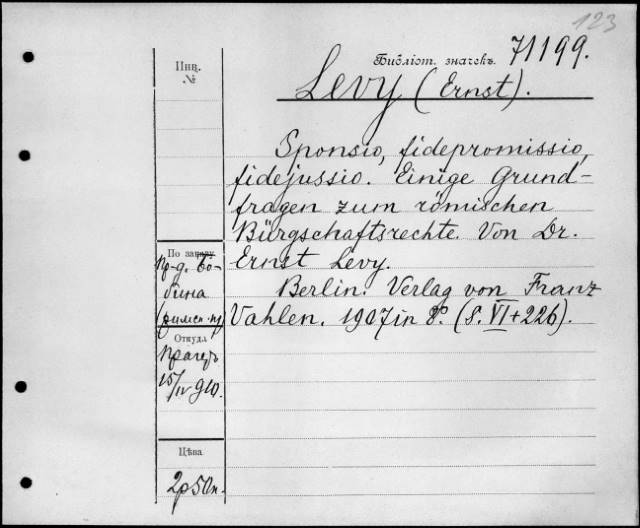 123
Библіот. значекъ 71199.
Инц.
№
Levy (Ernst).
Sponsio, fidepromissio,
fidejussio. Einige Grund-
fragen zum römischen
Bürgschaftsrechte. Von Dr.
Ernst Levy.
Berlin. Verlag von Franz
Vahlen. 1907 in 8°. (S. VI + 226).
По заказу
Пр-д. Бо-
бина
Откуда
15/IV 910.
Цѣна
2р50к.